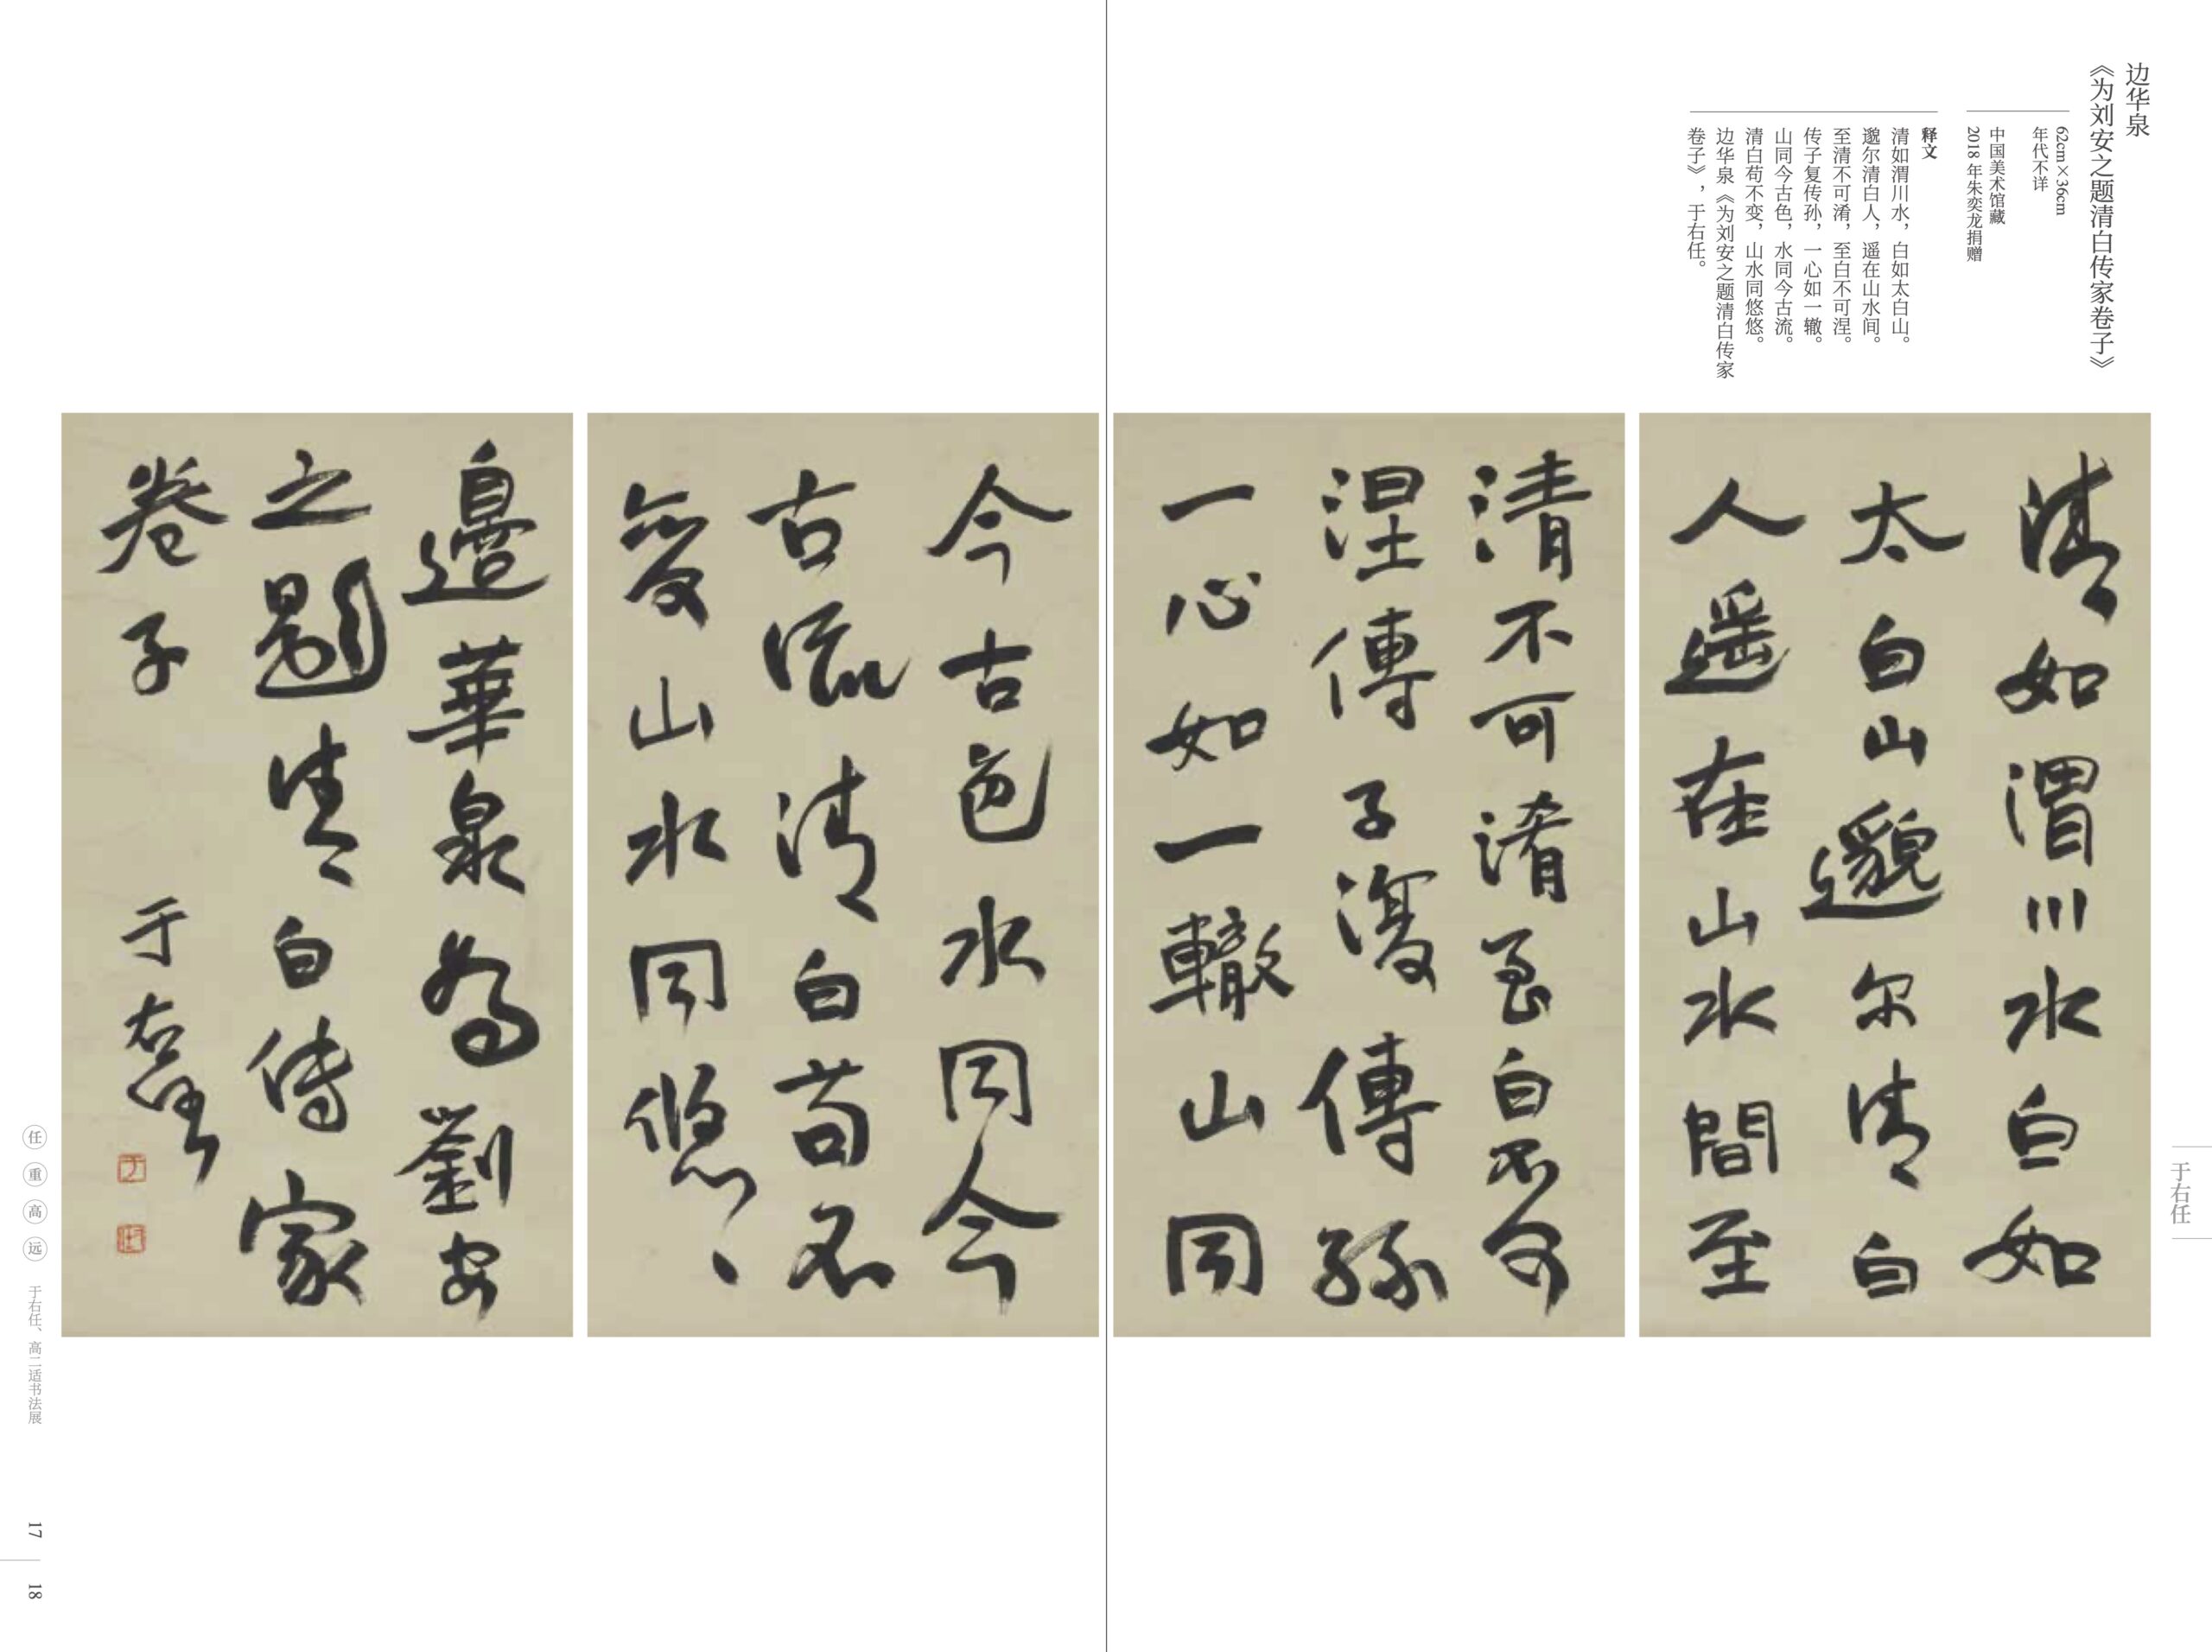 边华泉
《为刘安之题清白传家卷子》
62cm×36cm
年代不详
中国美术馆藏
2018 年朱奕龙捐赠
释文
清如渭川水，白如太白山。
邈尔清白人，遥在山水间。
至清不可淆，至白不可涅。
传子复传孙，一心如一辙。
山同今古色，水同今古流。
清白苟不变，山水同悠悠。
边华泉《为刘安之题清白传家
卷子》，于右任。
于右任
清如渭川水白如
太白山邈尔清白
人遥在山水間至
清不可淆至白不可
涅傳子復傳孫
一心如一轍山同
今古色水同今
古流清白苟不
變山水同悠〻
邊華泉為劉安
之題清白傳家
卷子 于右任
任重高远
于右任、高二适书法展
17
18